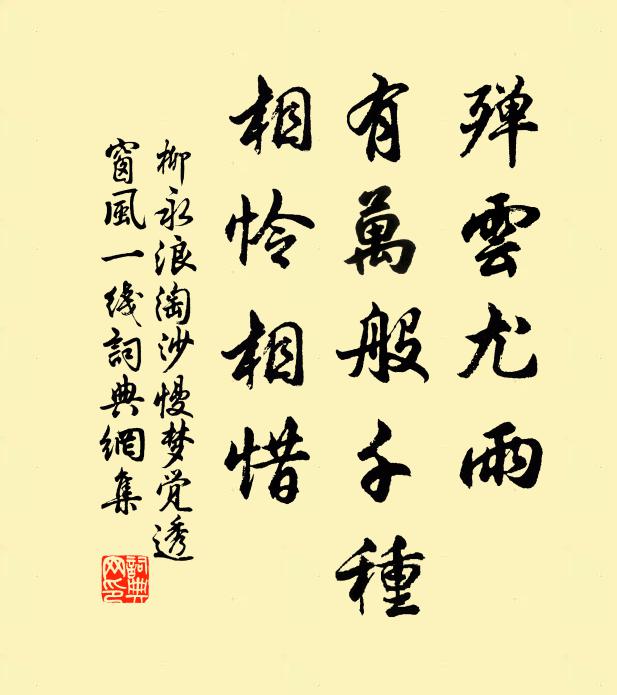 殫雲尤雨
有萬般千種
相怜相惜
柳永浪淘沙慢梦觉透
窗風一线詞典網集
詞典
网印